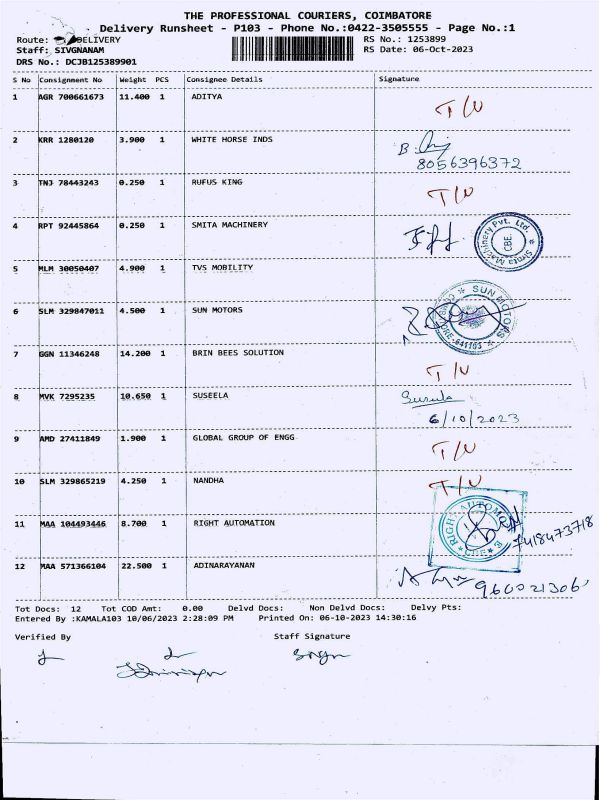 THE PROFESSIONAL COURIERS, COIMBATORE
Delivery Runsheet - P103 - Phone No.:0422-3505555 - Page No.:1
Route: DELIVERY RS No.: 1253899
Staff: SIVGNANAM RS Date: 06-Oct-2023
DRS No.: DCJB125389901
S No Consignment No Weight PCS Consignee Details Signature
1 AGR 700661673 11.400 1 ADITYA T/N
2 KRR 1280120 3.900 1 WHITE HORSE INDS
8056396372
3 TNJ 78443243 0.250 1 RUFUS KING T/N
4 RPT 92445864 0.250 1 SMITA MACHINERY Smita Machinery Pvt. Ltd. CBE.
5 MLM 30050407 4.900 1 TVS MOBILITY
6 SLM 329847011 4.500 1 SUN MOTORS SUN MOTORS
7 GGN 11346248 14.200 1 BRIN BEES SOLUTION T/N
8 MVK 7295235 10.650 1 SUSEELA
6/10/2023
9 AMD 27411849 1.900 1 GLOBAL GROUP OF ENGG T/N
10 SLM 329865219 4.250 1 NANDHA T/N
11 MAA 104493446 8.700 1 RIGHT AUTOMATION RIGHT CBE
7418473718
12 MAA 571366104 22.500 1 ADINARAYANAN
Tot Docs: 12 Tot COD Amt: 0.00 Delvd Docs: Non Delvd Docs: Delvy Pts:
Entered By :KAMALA103 10/06/2023 2:28:09 PM Printed On: 06-10-2023 14:30:16
Verified By Staff Signature